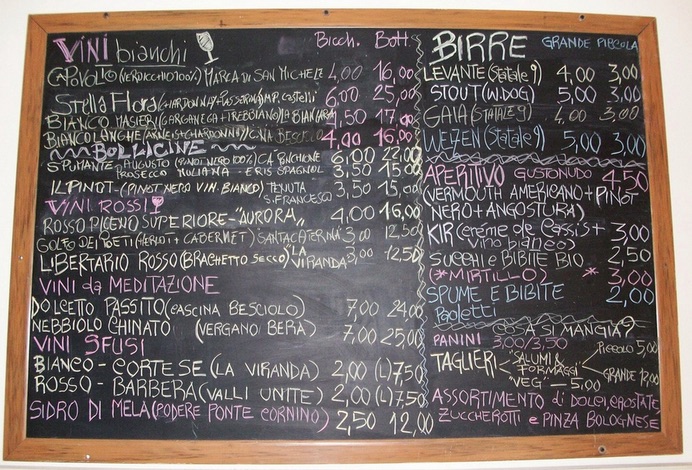 VINI bianchi Bicch. Bott.
CAPOVOLTO (VERDICCHIO 100%) MARCA DI SAN MICHELE 4,00 16,00
Stella Flora (CHARDONNAY-PASSERINA) MP. castelli 6,00 25,00
BIANCO MASIERI (GARGANEGA-TREBBIANO) LA BIANCARA 4,50 17,00
BIANCOLANGHE (ARNEIS+CHARDONNAY) C.NA BESCIOLO 4,00 16,00
BOLLICINE
SPUMANTE AUGUSTO (PINOT NERO 100%) CA' 6,00 22,00
PROSECCO JULIANA - ERIS SPAGNOL 3,50 15,00
IL PINOT - (PINOT NERO VIN. BIANCO) TENUTA S. FRANCESCO 3,50 15,00
VINI ROSSI
ROSSO PICENO SUPERIORE - "AURORA" 4,00 16,00
GOLFO DEI POETI (MERLOT + CABERNET) SANTA CATERINA 3,00 12,50
LIBERTARIO ROSSO (BRACHETTO SECCO) "LA VIRANDA" 3,00 12,50
VINI da MEDITAZIONE
DOLCETTO PASSITO (CASCINA BESCIOLO) 7,00 24,00
NEBBIOLO CHINATO (VERGANO BERA) 7,00 25,00
VINI SFUSI
BIANCO - CORTESE (LA VIRANDA) 2,00 (L) 7,50
ROSSO - BARBERA (VALLI UNITE) 2,00 (L) 7,50
SIDRO DI MELA (PODERE PONTE CORNINO) 2,50 12,00
BIRRE GRANDE PICCOLA
LEVANTE (Statale 9) 4,00 3,00
STOUT (W.DOG) 5,00 3,00
GAIA (STATALE 9) 4,00 3,00
WEIZEN (Statale 9) 5,00 3,00
APERITIVO GUSTONUDO 4,50
(VERMOUTH AMERICANO + PINOT
NERO + ANGOSTURA)
KIR (creme de cassis + vino bianco) 3,00
SUCCHI e BIBITE BIO 2,50
(*MIRTILLO) * 3,00
SPUME E BIBITE 2,00
Paoletti
COSA SI MANGIA?
PANINI 3,00/3,50
TAGLIERI SALUMI & FORMAGGI PICCOLO 5,00
GRANDE
'VEG' - 5,00
ASSORTIMENTO di DOLCI, CROSTATE,
ZUCCHEROTTI e PINZA BOLOGNESE